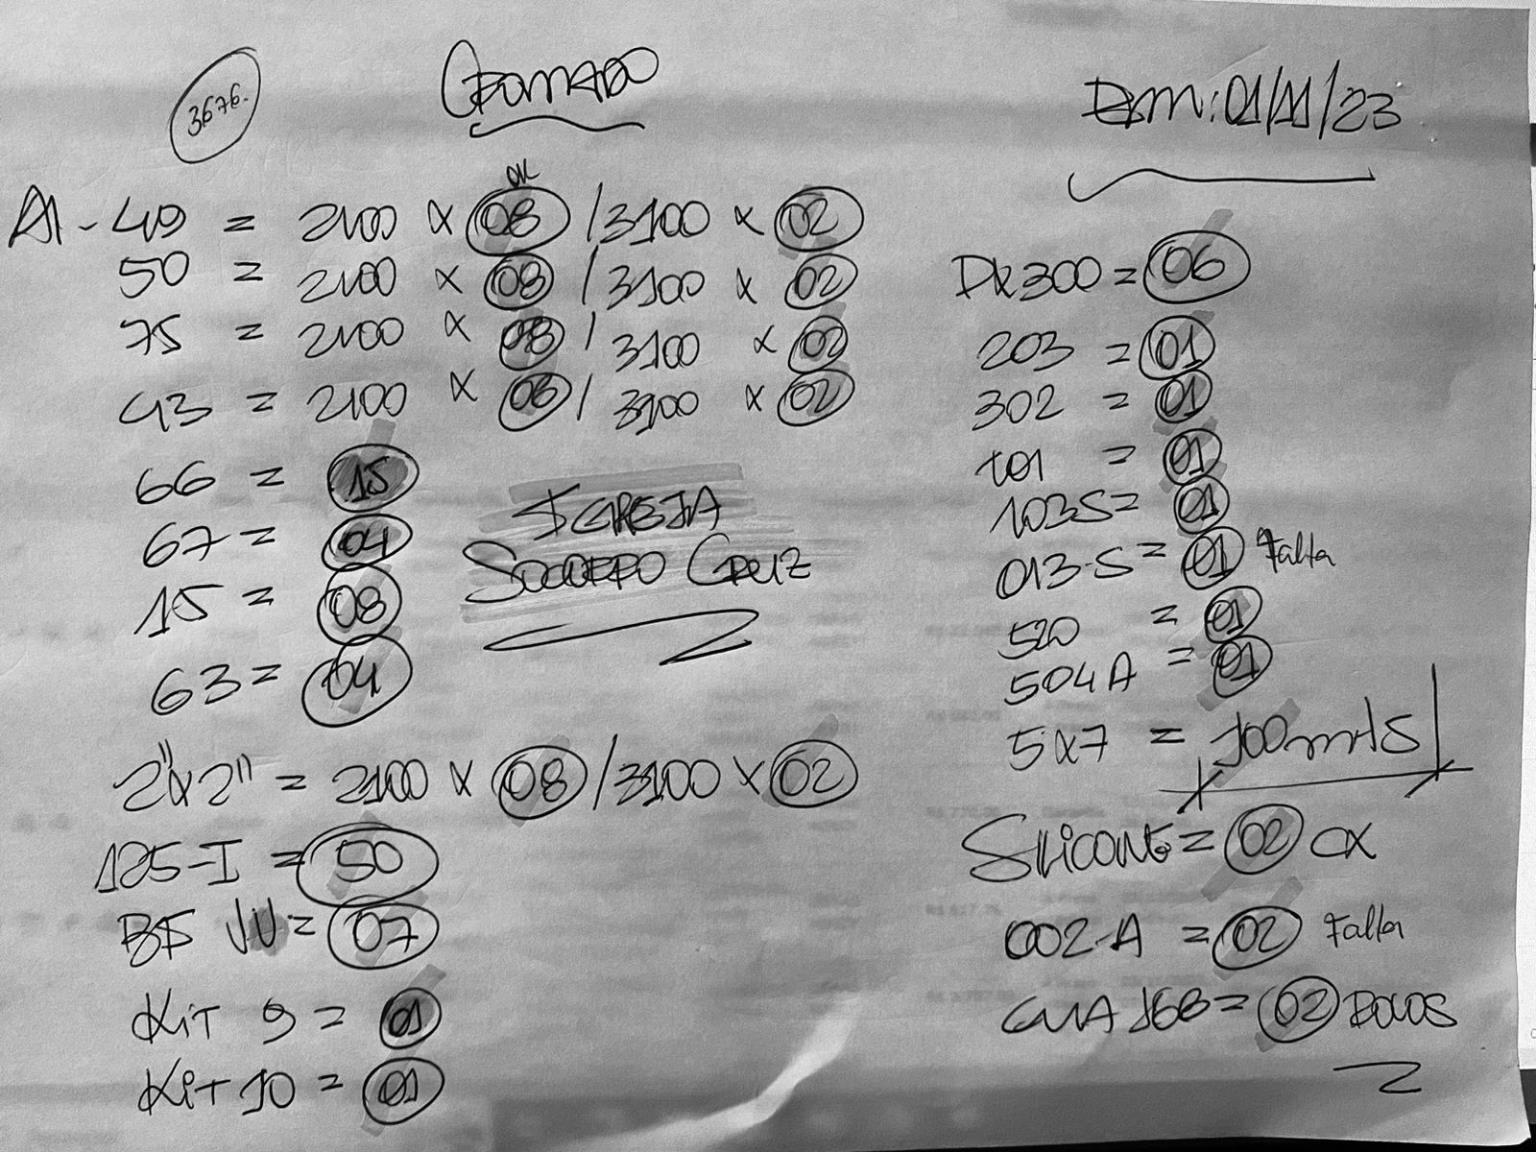 3676.
CROMADO
Em: 01/11/23
OK
Al - 49 = 2100 x 08 / 3100 x 02
50 = 2100 x 08 / 3100 x 02
75 = 2100 x 08 / 3100 x 02
43 = 2100 x 08 / 3100 x 02
66 = 15
67 = 04
15 = 08
63 = 04
IGREJA
SOCORRO CRUZ
2"x2" = 2100 x 08 / 3100 x 02
125-I = 50
= 07
Kit 9 = 01
Kit 10 = 01
DX300 = 06
203 = 01
302 = 01
101 = 01
103S = 01
013-S = 01 Falta
520 = 01
504A = 01
5x7 = 100 mts
SILICONE = 02 CX
002-A = 02 Falta
168 = 02 ROLOS